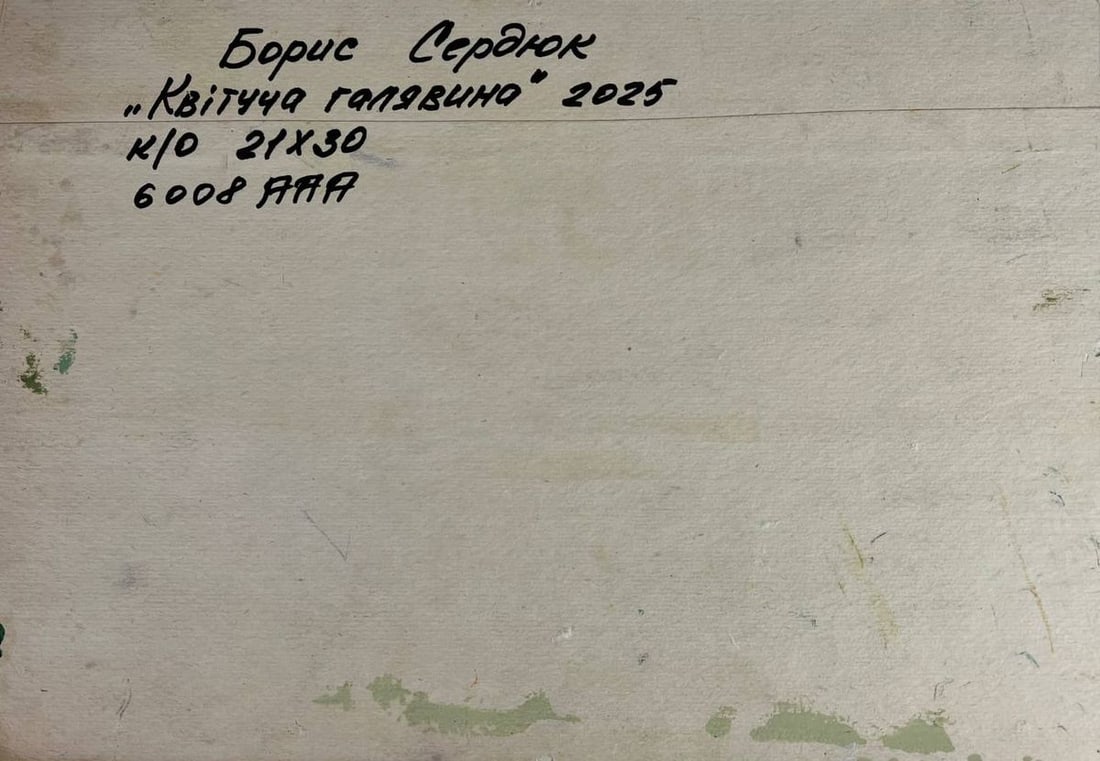 Борис Сердюк
„Квітуча галявина" 2025
к/о 21х30
6008 ААА